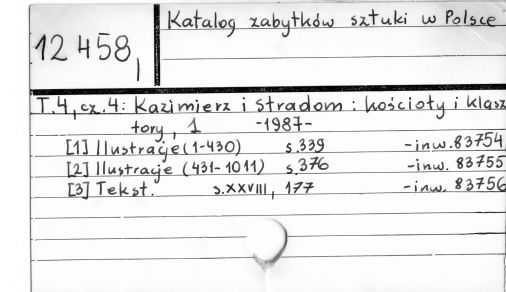 Katalog zabytków sztuki w Polsce
12 458,
T.4, cz.4: Kazimierz i Stradom : kościoły i klasz
tory, 1 -1987-
[1] Ilustracje (1-430) s.339 -inw. 83754
[2] Ilustracje (431-1011) s.376 -inw. 83755
[3] Tekst. s.XXVIII, 177 -inw. 83756